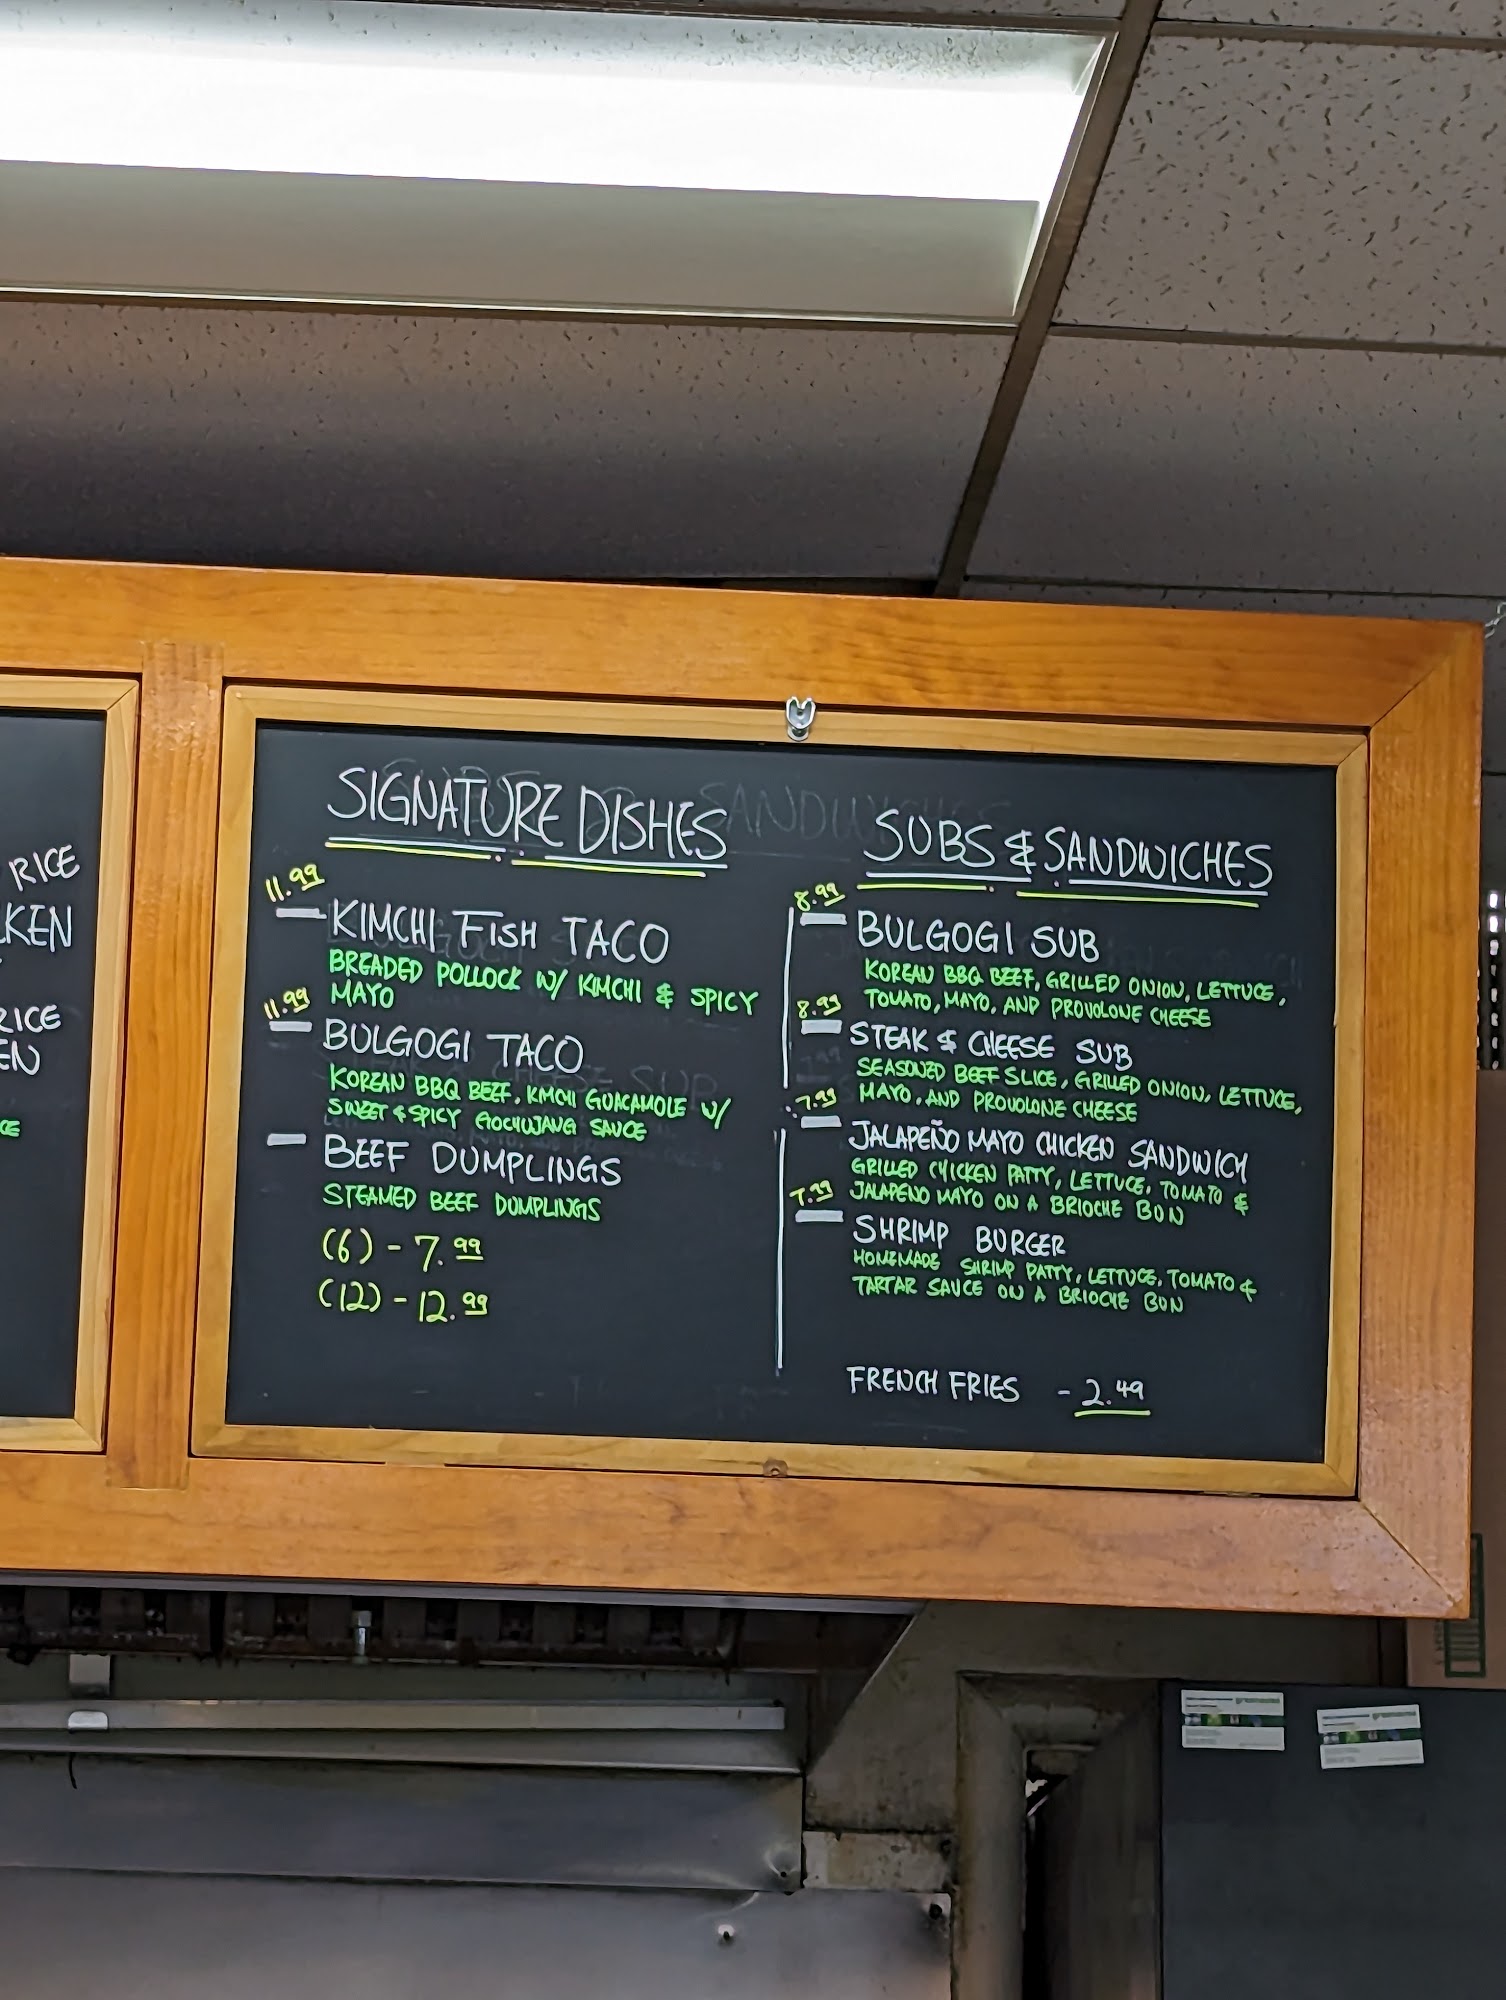 RICE
KEN
RICE
EN
CE
SIGNATURE DISHES
11.99
KIMCHI FISH TACO
BREADED POLLOCK W/ KIMCHI & SPICY
MAYO
11.99
BULGOGI TACO
KOREAN BBQ BEEF, KMCHI GUACAMOLE W/
SWEET & SPICY GOCHUJANG SAUCE
BEEF DUMPLINGS
STEAMED BEEF DUMPLINGS
(6) - 7.99
(12) - 12.99
SUBS & SANDWICHES
8.99
BULGOGI SUB
KOREAN BBQ BEEF, GRILLED ONION, LETTUCE,
TOMATO, MAYO, AND PROVOLONE CHEESE
8.99
STEAK & CHEESE SUB
SEASONED BEEF SLICE, GRILLED ONION, LETTUCE,
MAYO, AND PROVOLONE CHEESE
7.99
JALAPEÑO MAYO CHICKEN SANDWICH
GRILLED CHICKEN PATTY, LETTUCE, TOMATO &
JALAPENO MAYO ON A BRIOCHE BUN
7.99
SHRIMP BURGER
HOMEMADE SHRIMP PATTY, LETTUCE, TOMATO &
TARTAR SAUCE ON A BRIOCHE BUN
FRENCH FRIES - 2.49